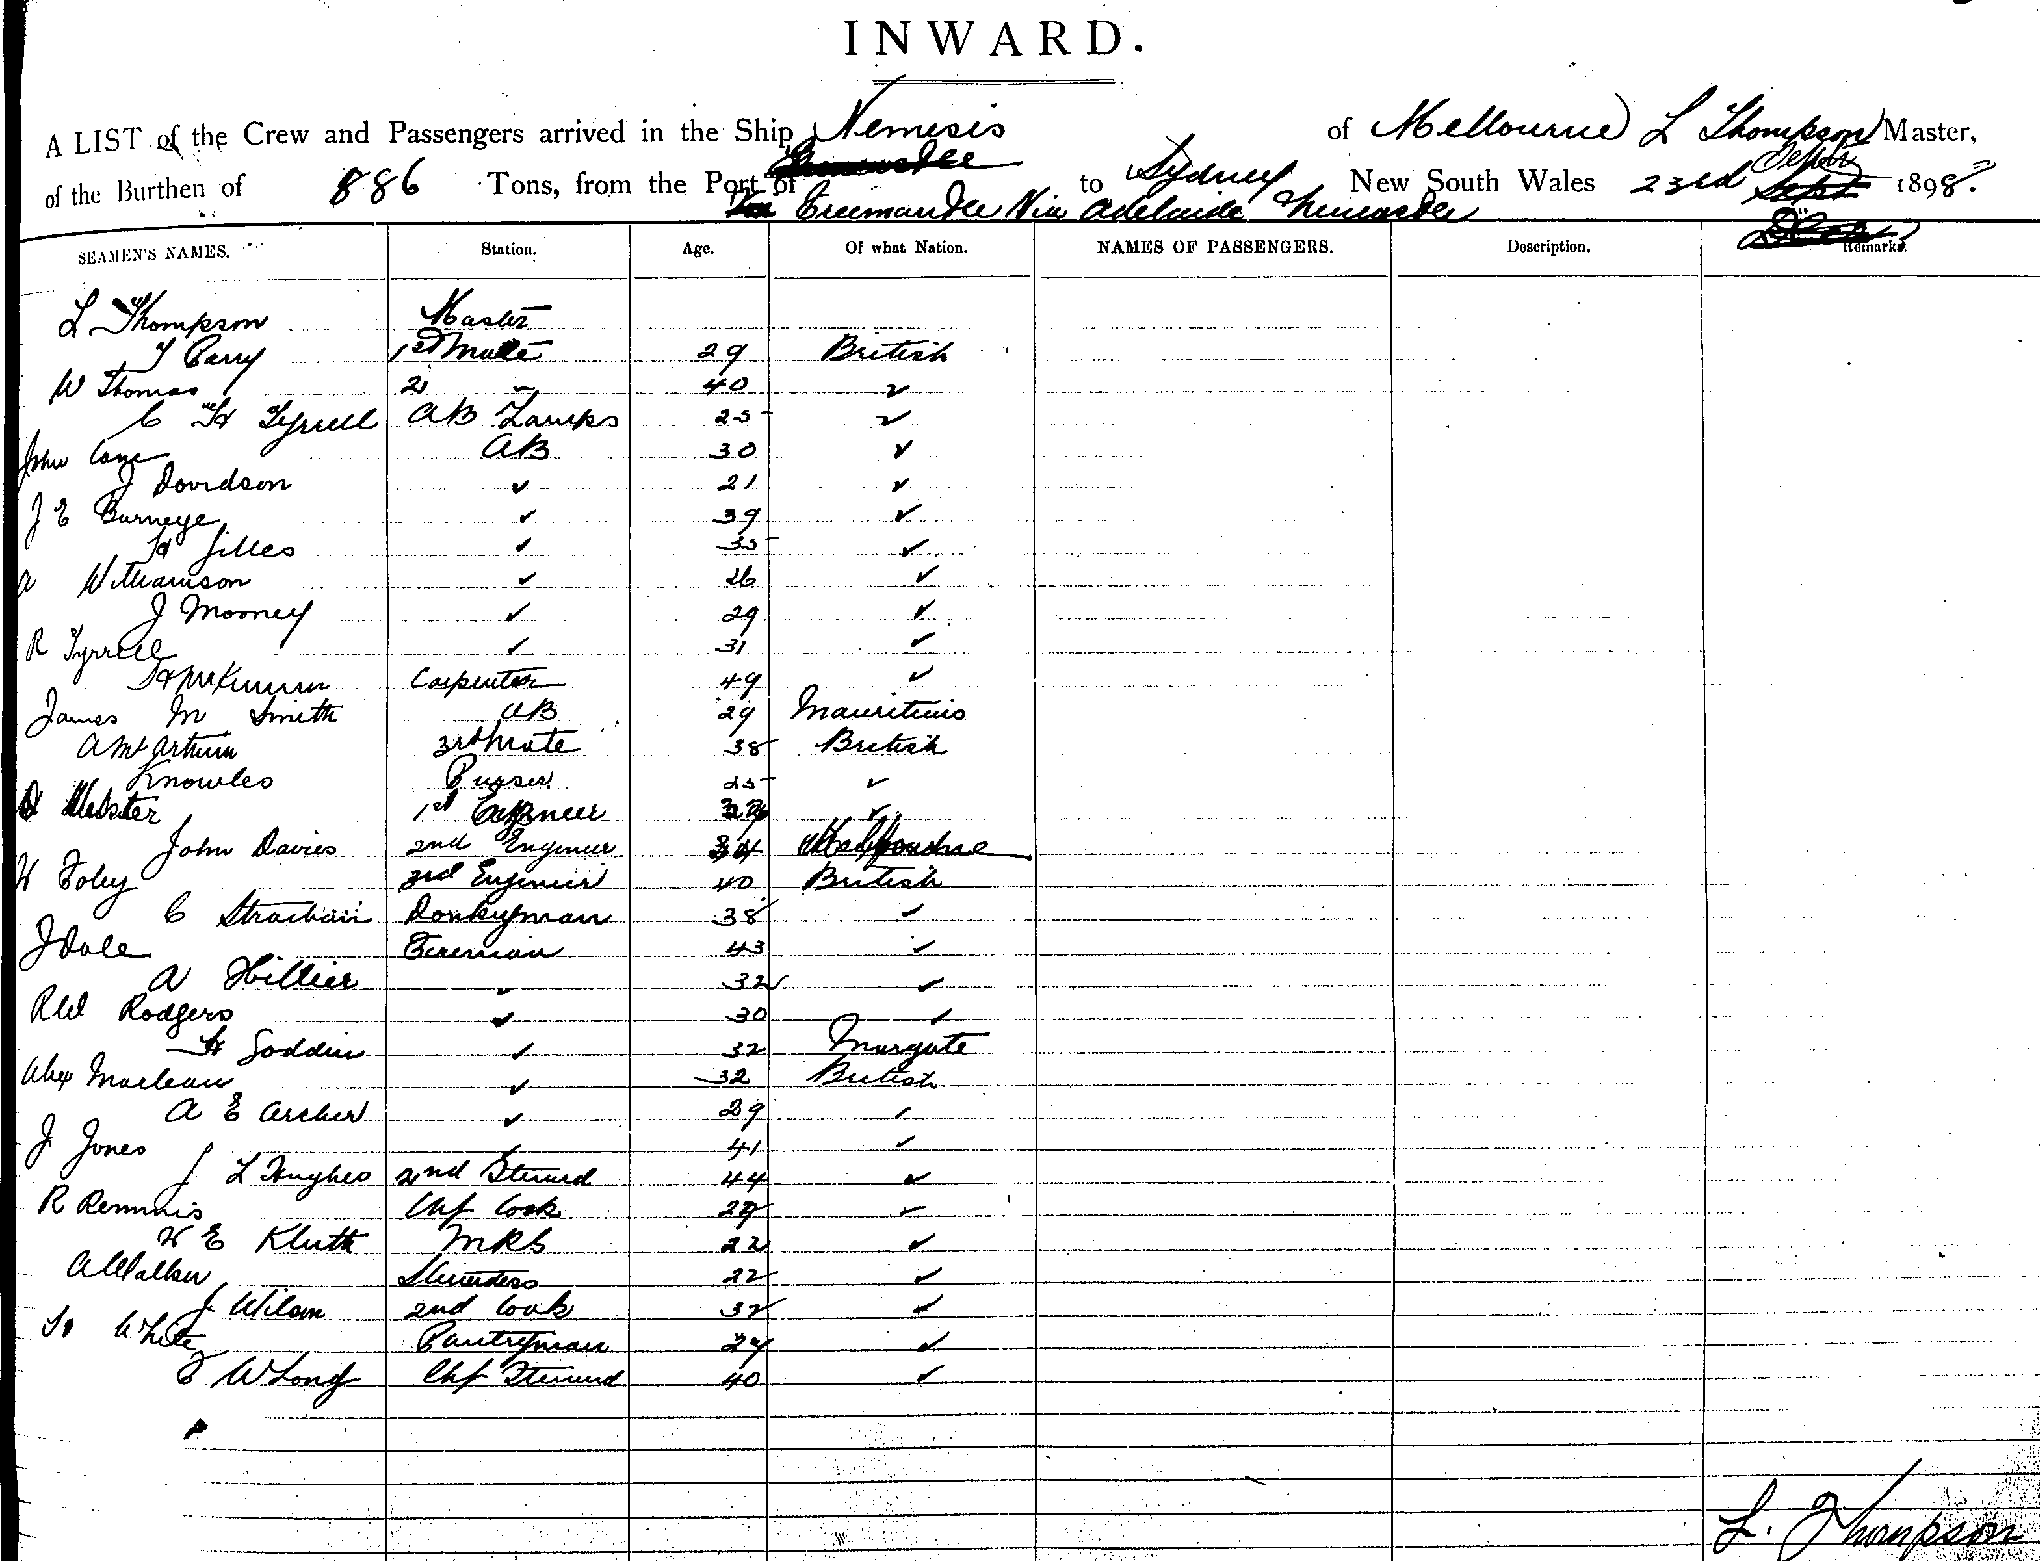 INWARD.
A LIST of the Crew and Passengers arrived in the Ship Nemesis of Melbourne L Thompson Master,
of the Burthen of 886 Tons, from the Port of to Sydney New South Wales 23rd 1898.
Freemantle Via Adelaide Newcastle
SEAMEN'S NAMES. Station. Age. Of what Nation. NAMES OF PASSENGERS. Description. Remarks.
L Thompson Master
T Parry 1st Mate 29 British
W Thomas 2 " 40 ✓
C H Tyrrell AB Lamps 25 ✓
John Cane AB 30 ✓
J Davidson ✓ 21 ✓
J E Burneye ✓ 39 ✓
H Gilles ✓ 35 ✓
A Williamson ✓ 26 ✓
J Mooney ✓ 29 ✓
R Tyrrell ✓ 31 ✓
H McKinnon Carpenter 49 ✓
James M Smith AB 29 Mauritius
A McArthur 3rd Mate 38 British
Knowles Purser 25 ✓
Webster 1st Engineer ✓
John Davies 2nd Engineer 34
W Foley 3rd Engineer 40 British
C Strachan Donkeyman 38 ✓
J Dale Fireman 43 ✓
A Hillier ✓ 32 ✓
Rodgers ✓ 30 ✓
H Goddin ✓ 32 Margate
Alex Maclean ✓ 32 British
A E Archer ✓ 29 ✓
J Jones ✓ 41 ✓
J L Hughes 2nd Steward 44 ✓
R Remmis Chf Cook ✓
W E Kluth MRS 22 ✓
A Walker Stewardess 22 ✓
J Wilson 2nd Cook 32 ✓
White Pantryman 24 ✓
F W Long Chf Steward 40 ✓
L. Thompson